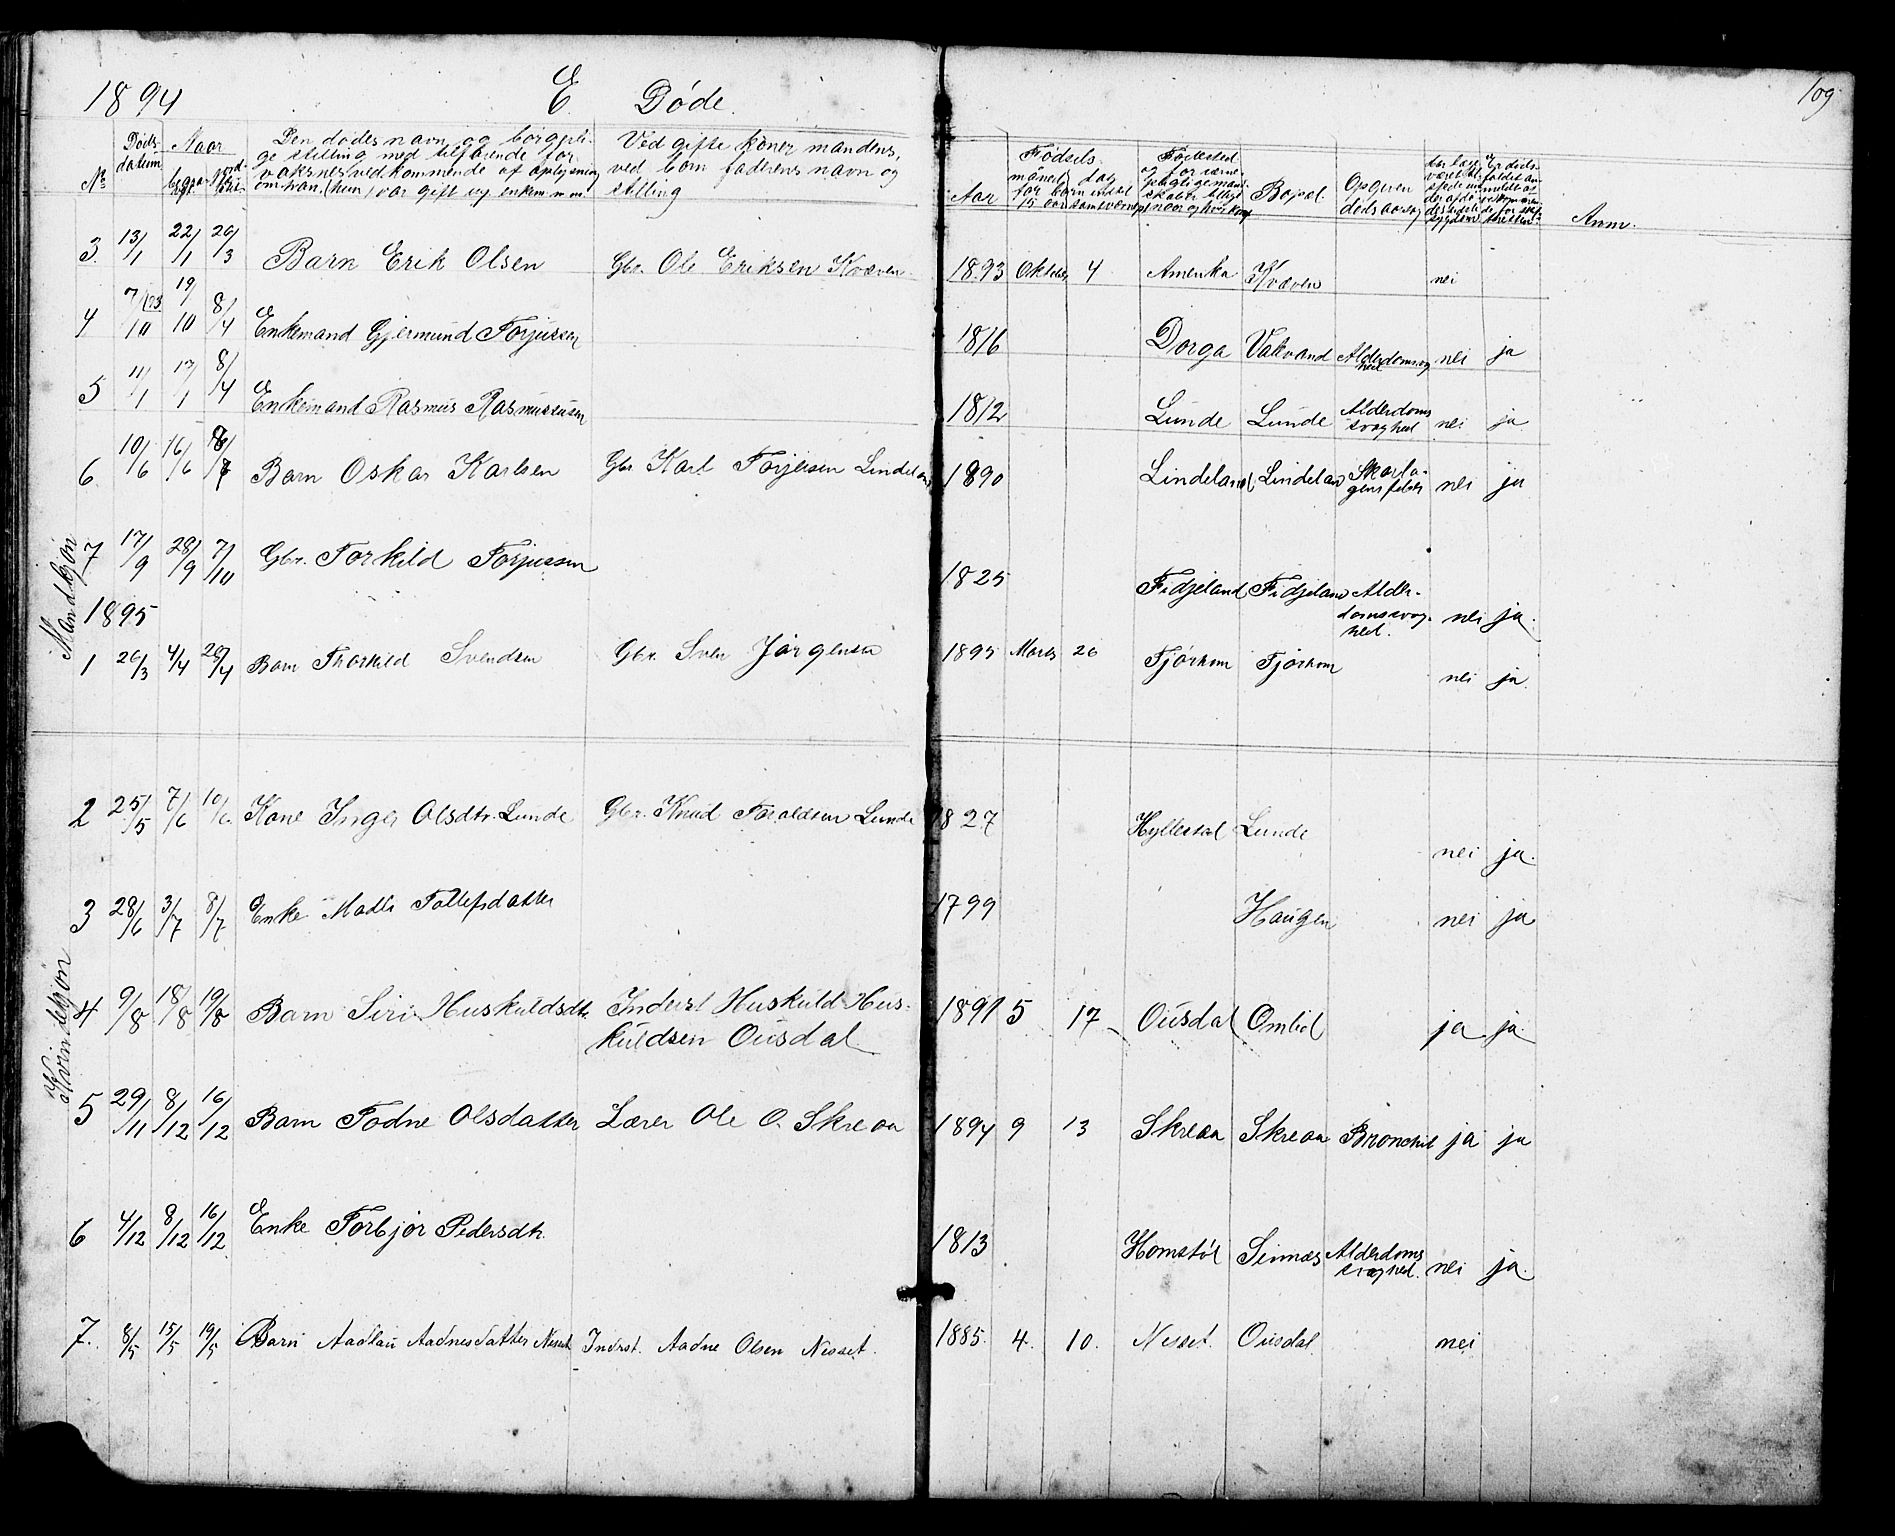 1894 E Døde. 109
No Døds datum Naar
Den dødes navn og borgerli-
ge stilling med tilføiende for
voksnes vedkommende af oplysning
om han (hun) var gift og enkem. m.m.
Ved gifte koner mandens,
ved børn faderens navn og
stilling
Aar
Fødsels-
maaned dag
for børn indtil
15 aar
Fødested
Bopæl
Opgiven
dødsaarsag
Anm.
3. 13/1 22/1 20/3 Barn Erik Olsen Gbr. Ole Eriksen Kvæven 1893 Oktober 4 Amerika Kvæven nei
4 7/10 93 19/10 8/4 Enkemand Gjermund Torjussen 1816 Dorga Vatvand Alderdomssvag
hed nei ja
5 11/1 17/1 8/4 Enkemand Rasmus Rasmussen 1812 Lunde Lunde Alderdoms
svaghed nei ja
6 10/6 16/6 Barn Oskar Karlsen Gbr Karl Torjersen Lindeland 1890 Lindeland Lindeland Skarla-
gensfeber nei ja
Mandkjøn
7 17/9 28/9 7/10 Gbr. Torkild Torjussen 1825 Fidjeland Fidjeland Alder-
domssvag-
hed. nei ja.
1895
1 26/3 4/4 20/4 Barn Thorkild Svendsen Gbr. Sven Jørgensen 1895 Marts 26 Tjørhom Tjørhom nei ja.
2 25/5 7/6 10/6. Kone Inger Olsdtr. Lunde Gbr. Knud Toroldsen Lunde 1827 Hyllestad Lunde nei ja.
3 28/6 3/7 8/7 Enke Malli Tollefsdatter 1799 Haugen nei ja
Kvindekjøn
4 9/8 18/8 19/8 Barn Siri Huskuldsdtr. Inderst Huskuld Hus-
kuldsen Ousdal 1891 5 17 Ousdal Omlid ja ja.
5 29/11 8/12 16/12 Barn Todne Olsdatter Lærer Ole O. Skreaa 1894 9 13 Skreaa Skreaa Bronchit ja ja
6 4/12 8/12 16/12 Enke Torbjør Pedersdtr. 1813 Homstøl Sinnæs Alderdoms
svaghed. nei ja.
7. 8/5 15/5 19/5 Barn Aadlau Aadnesdatter Nesset Inderst. Aadne Olsen Nesset. 1885. 4. 10. Nesset. Ousdal. nei